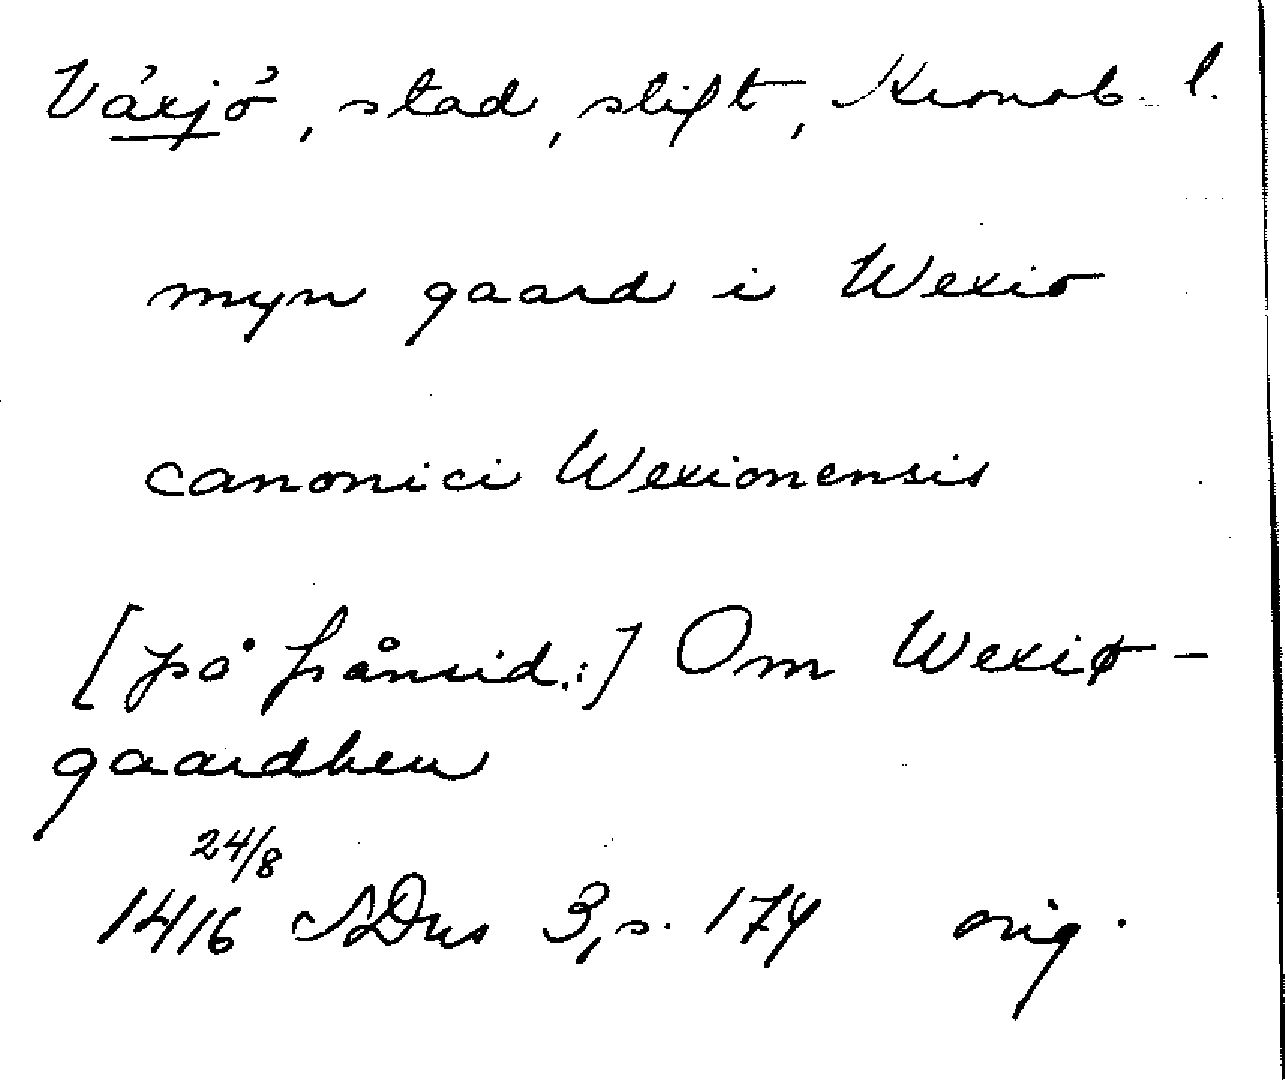 Växjö, stad, stift, Kronob. l.
myn gaard i Wexio
canonici Wexionensis
[på frånsid.:] Om Wexiø-
gaardhen
24/8
1416 SDns 3, s. 174 orig.